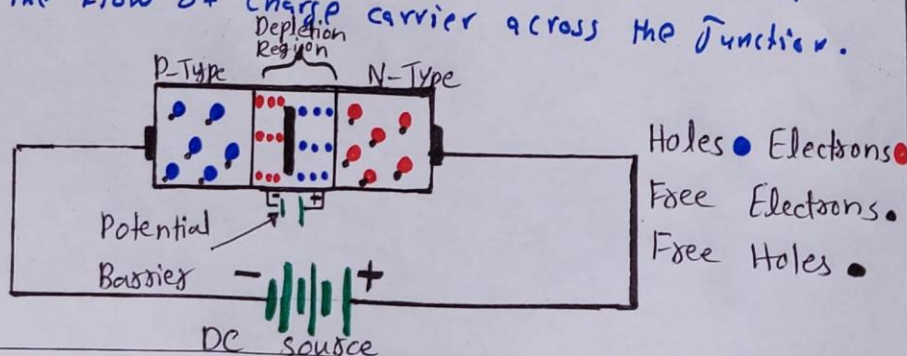 the flow of charge carrier across the Junction.
Depletion
Region
P-Type
N-Type
- +
Holes Electrons
Free Electrons.
Free Holes
Potential
Barrier
- +
DC source